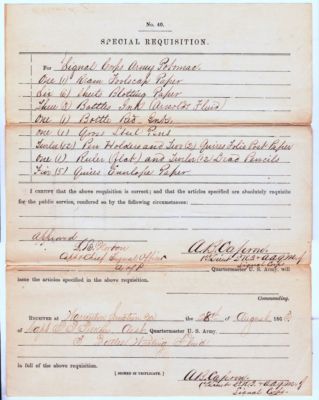 No. 40.
SPECIAL REQUISITION.
For Signal Corps Army Potomac
One (1) Ream Foolscap Paper
Six (6) Sheets Blotting Paper
Three (3) Bottles Ink (Arnolds Fluid)
One (1) Bottle Red Ink
One (1) Gross Steel Pens
Twelve (12) Pen Holders and Two (2) Quires Folio Post Paper
One (1) Ruler (flat) and Twelve (12) Lead Pencils
Five (5) Quires Envelope Paper
I CERTIFY that the above requisition is correct; and that the articles specified are absolutely requisite
for the public service, rendered so by the following circumstances:
Approved
Capt & Chief Signal Officer
A of P
Quartermaster U. S. Army, will
issue the articles specified in the above requisition.
Commanding.
RECEIVED at Warrenton Junction Va the 28th of August 186
of Capt Quartermaster U. S. Army,
in full of the above requisition.
[SIGNED IN TRIPLICATE.]
Signal Corps